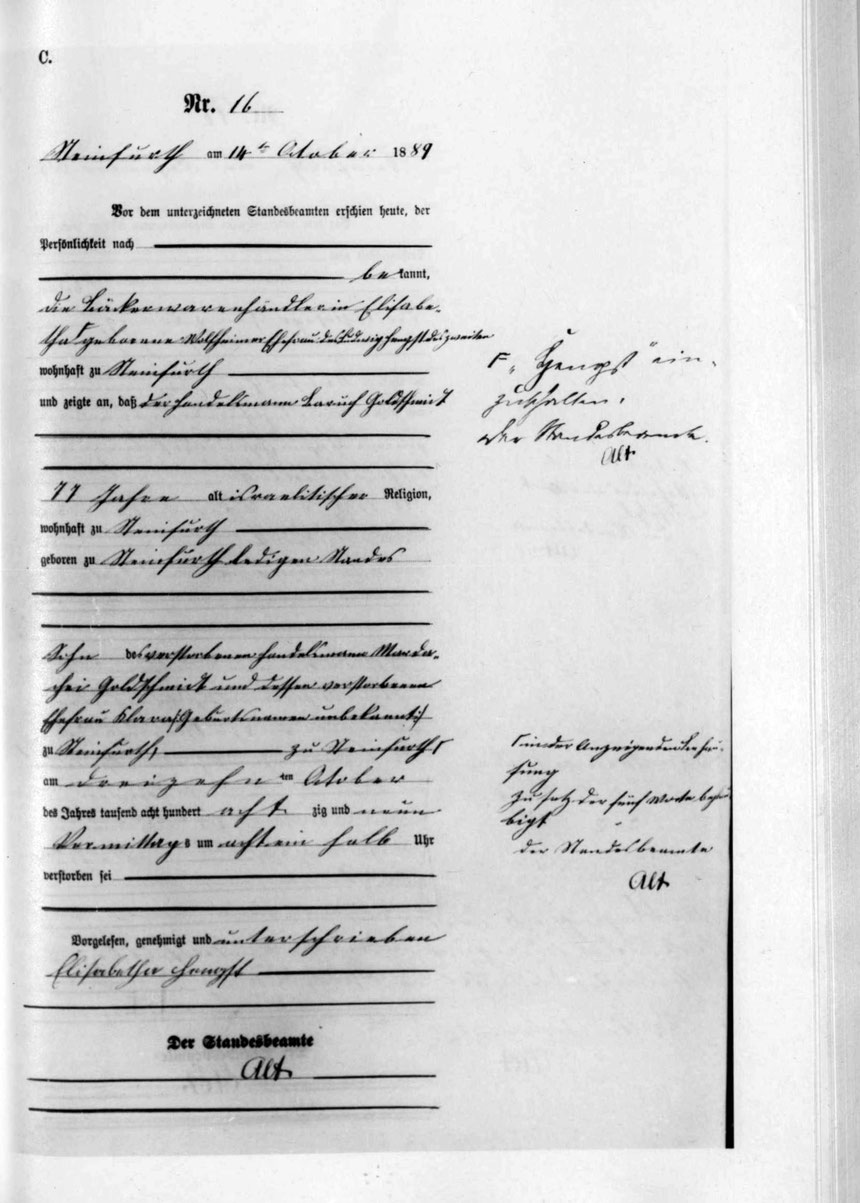 C.
Nr. 16
Steinfurth am 14ten Otober 1889
Vor dem unterzeichneten Standesbeamten erschien heute, der
Persönlichkeit nach
bekannt,
die Bäckerwarenhändlerin Elisabe-
tha geborene Wolfsheimer Ehefrau des Ludwig Hengst des zweiten
wohnhaft zu Steinfurth
und zeigte an, daß der Handelsmann Baruch Goldschmidt
77 Jahre alt israelitischer Religion,
wohnhaft zu Steinfurth
geboren zu Steinfurth ledigen Standes
Sohn des verstorbenen Handelsmann Marda-
chei Goldschmidt und dessen verstorbenen
Ehefrau Klara /: Geburtsnamen unbekannt :/
zu Steinfurth, zu Steinfurth
am dreizehnten Otober
des Jahres tausend acht hundert achtzig und neun
Vormittags um acht ein halb Uhr
verstorben sei
Vorgelesen, genehmigt und unterschrieben
Elisabetha Hengst
Der Standesbeamte
Alt
„Hengst" ein-
zuschalten.
Der Standesbeamte.
Alt
in der Anzeigenden Behau-
sung
Zusatz der fünf Worte beglau-
bigt
der Standesbeamte
Alt